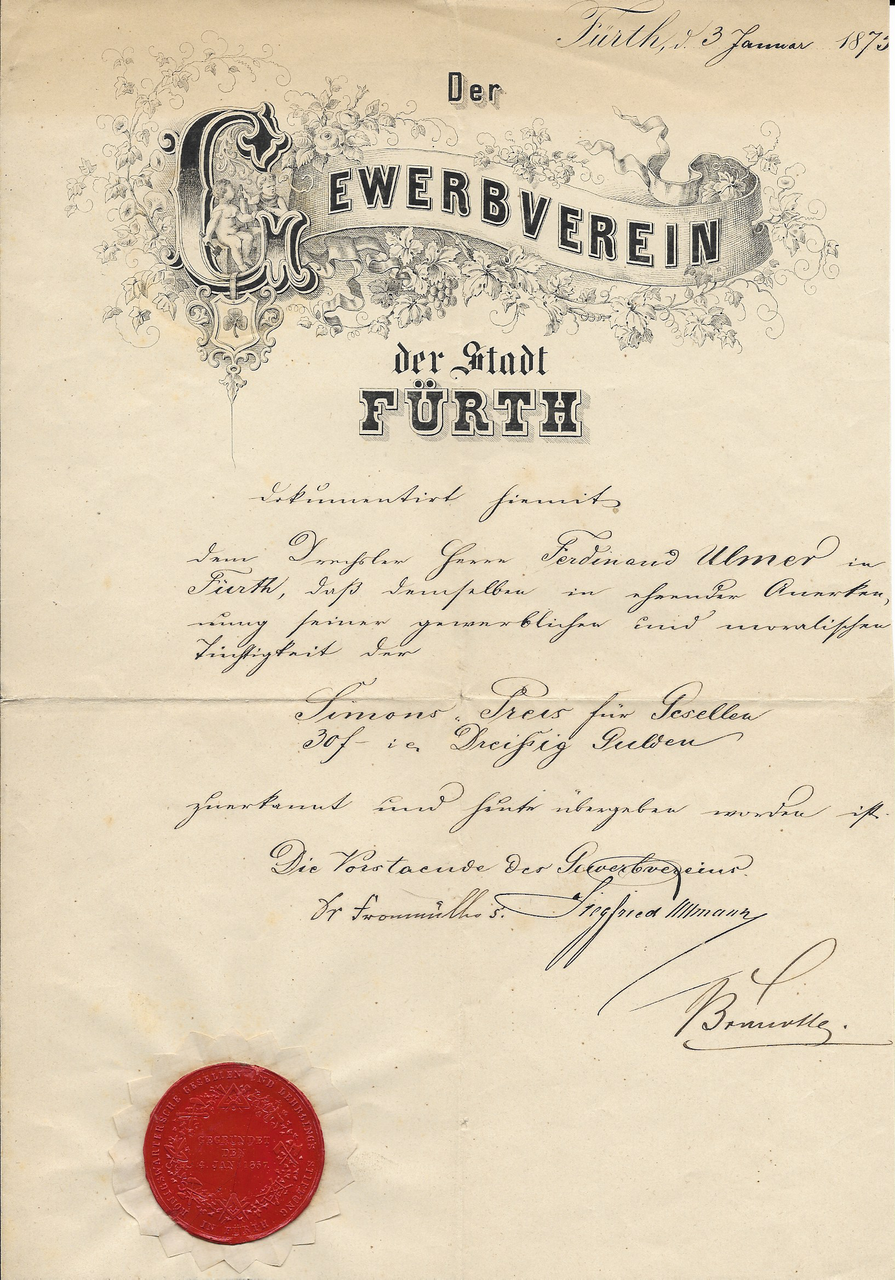 Fürth, d. 3 Januar 1873
Der
GEWERBVEREIN
der Stadt
FÜRTH
dokumentirt hiemit
dem Drechsler Herrn Ferdinand Ulmer in
Fürth, daß demselben in ehrender Anerken-
nung seiner gewerblichen und moralischen
Tüchtigkeit der
Simons-Preis für Gesellen
30f - i.e. Dreißig Gulden
zuerkannt und heute übergeben worden ist.
Die Vorstaende des Gewerbvereins.
Dr Fronmüller s.
Siegfried Ullmann
KÖNIGSWARTER'SCHE GESELLEN UND LEHRLINGS STIFTUNG
IN FÜRTH
GEGRÜNDET
DEN
JAN.